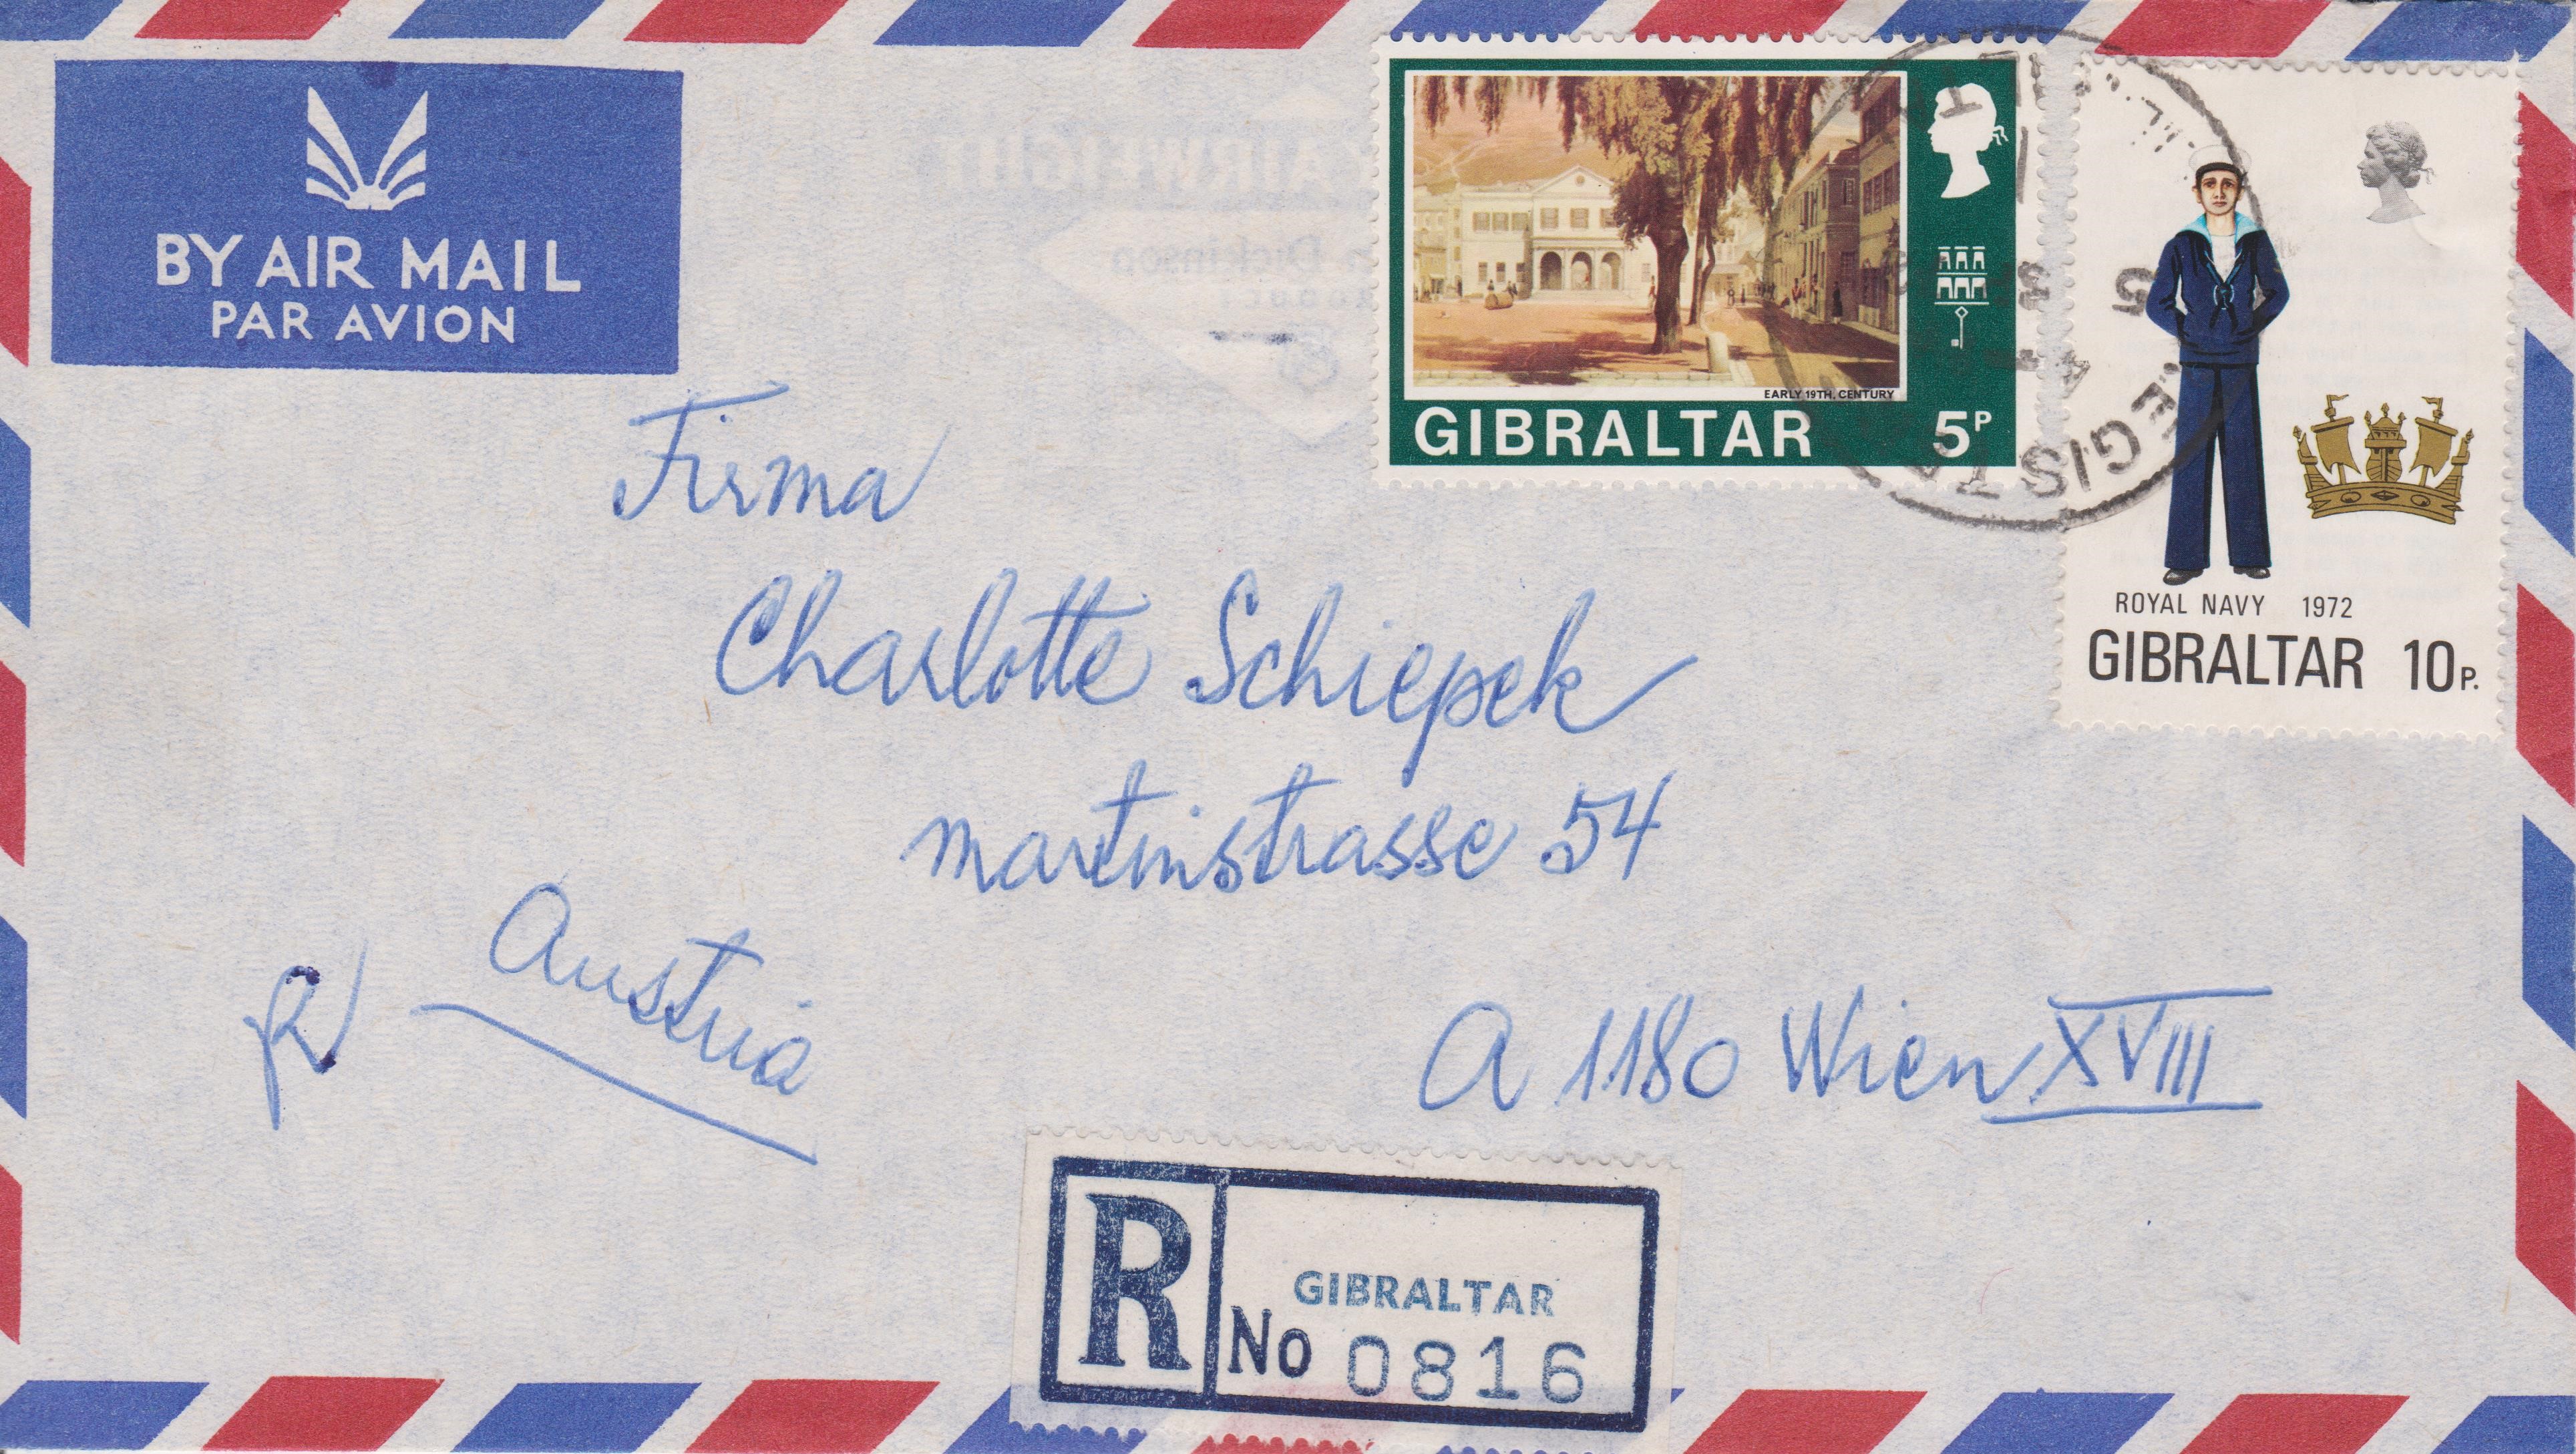 BY AIR MAIL
PAR AVION
EARLY 19TH. CENTURY
GIBRALTAR 5P
ROYAL NAVY 1972
GIBRALTAR 10P.
Firma
Charlotte Schiepek
Martinstrasse 54
A 1180 Wien XVIII
Austria
R
R
GIBRALTAR
No 0816